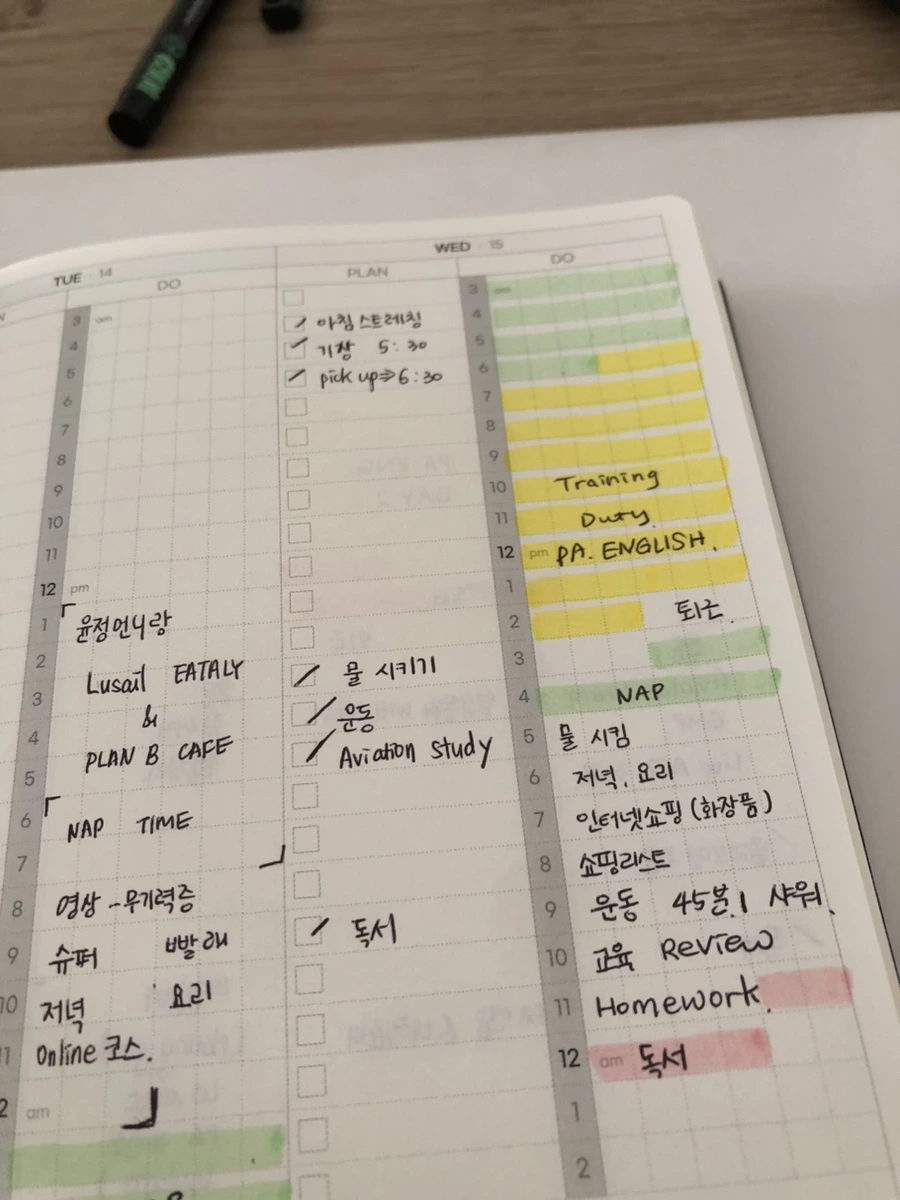 TUE 14
DO
3 am
4
5
6
7
8
9
10
11
12 pm
1 윤정언니랑
2 Lusail EATALY
3 &
4 PLAN B CAFE
5
6 NAP TIME
7
8 영상 - 무기력증
9 슈퍼 빨래
10 저녁 요리
11 Online 코스.
12 am
WED 15
PLAN
아침 스트레칭
기상 5:30
pick up ⇒ 6:30
물 시키기
운동
Aviation study
독서
DO
3 am
4
5
6
7
8
9
10 Training
11 Duty.
12 pm PA. ENGLISH.
1
2 퇴근.
3
4 NAP
5 물 시킴
6 저녁. 요리
7 인터넷쇼핑 (화장품)
8 쇼핑리스트
9 운동 45분. 샤워.
10 교육 Review
11 Homework
12 am 독서
1
2